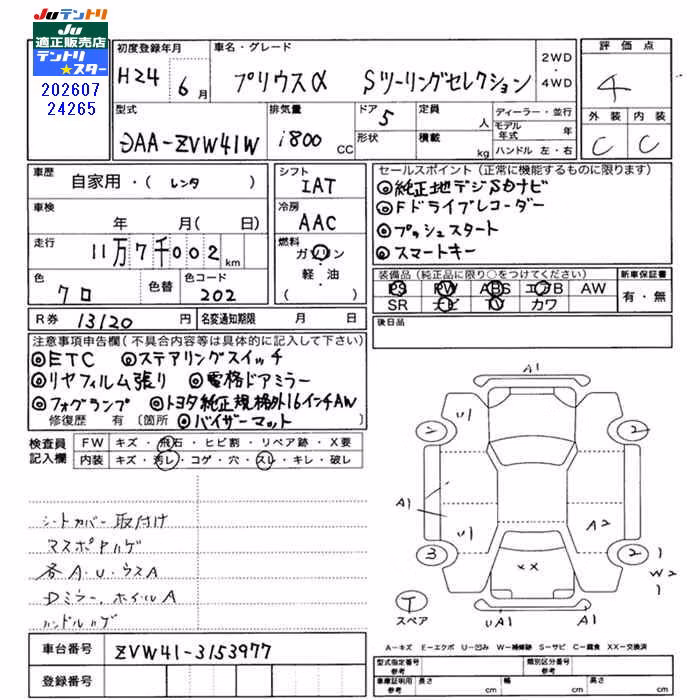 JUテントリ
JU
適正販売店
テントリ
★スター
202607
24265
初度登録年月
H24 6月
車名・グレード
プリウスα Sツーリングセレクション
2WD
・
4WD
評価点
4
外装 内装
C C
型式
DAA-ZVW41W
排気量
1800 CC
ドア
5
形状
定員
人
積載
kg
ディーラー・並行
モデル年式 年
ハンドル 左・右
車歴
自家用・(レンタ)
車検
年 月(日)
走行
11万7千002km
色
クロ
色替
色コード
202
シフト
IAT
冷房
AAC
燃料
ガソリン
・
軽・油
( )
セールスポイント(正常に機能するものに限ります)
◎純正地デジSDナビ
◎Fドライブレコーダー
◎プッシュスタート
◎スマートキー
装備品(純正品に限り○をつけてください)
PS PW ABS エアB AW
SR ナビ TV カワ
新車保証書
有・無
R券 13120円
名変通知期限 月 日
後日品
注意事項申告欄(不具合内容等は具体的に記入して下さい)
◎ETC ◎ステアリングスイッチ
◎リヤフィルム張り ◎電格ドアミラー
◎フォグランプ ◎トヨタ純正規格外16インチAW
修復歴 有(箇所 ◎バイザーマット
検査員
記入欄
FW キズ・飛石・ヒビ割・リペア跡・X要
内装 キズ・汚レ・コゲ・穴・スレ・キレ・破レ
シートカバー取付け
マスボヤハゲ
各A・U・ウスA
Dミラー、ホイルA
ハンドルハゲ
A1
U1
2
2
A1
U1
A2
3
2
XX
W2
T
スペア
UA1
A1
A-キズ E-エクボ U-凹み W-補修跡 S-サビ C-腐食 XX-交換済
車台番号 ZVW41-3153977
登録番号
型式指定番号
参考
類別区分番号
参考
車庫証明用
参考
長さ cm
幅 cm
高さ cm